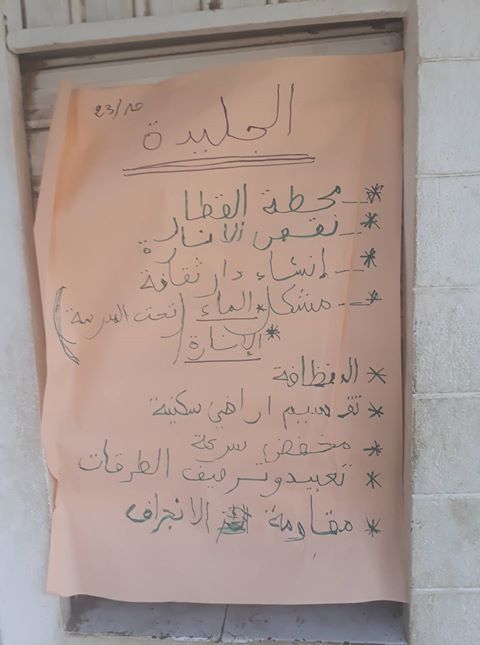 23/
الجليدة
* محطة القطار
* نقص الانارة
* إنشاء دار ثقافة
* مشكل الماء (تحت المدرسة)
* الإنارة
* النظافة
* تقسيم اراضي سكنية
* مخفض سرعة
* تعبيد وترصيف الطرقات
* مقاومة الانجراف